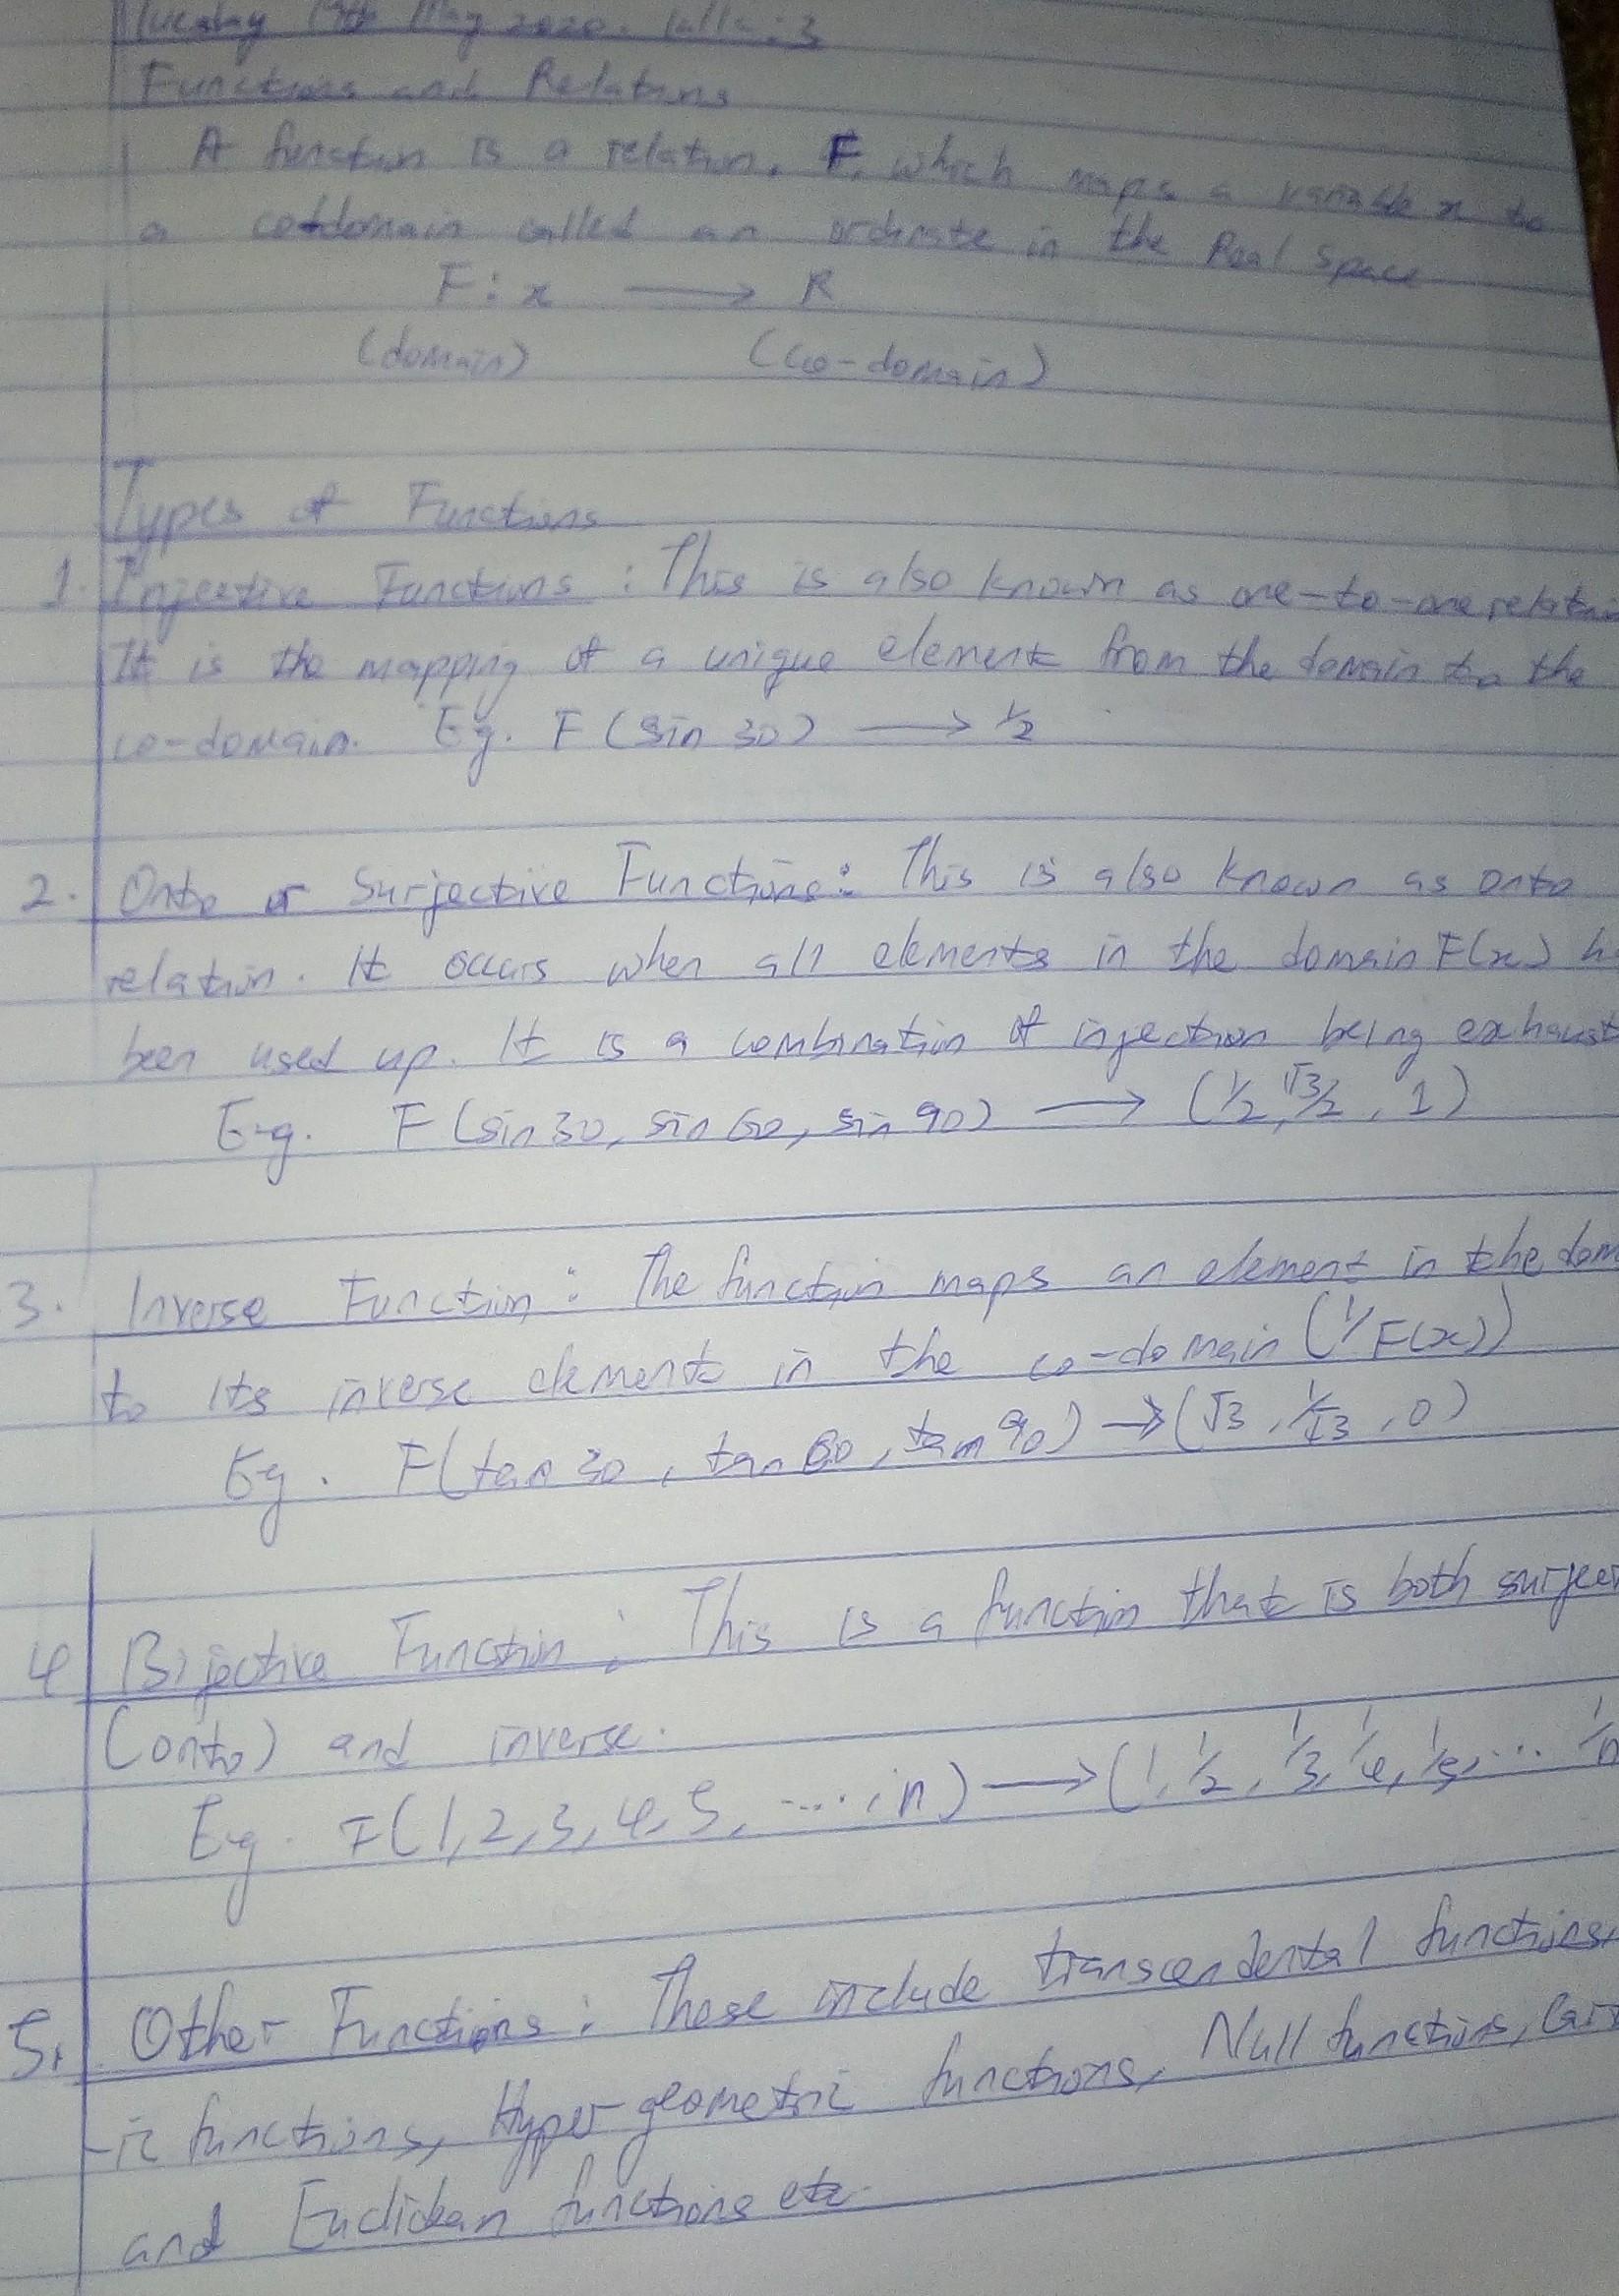 Tuesday 19th May 2020.
Functions and Relations
A function is a relation, F, which maps a variable x to
a codomain called an ordinate in the Real Space
F: x → R
(domain) (co-domain)
Types of Functions
1. Injective Functions: This is also known as one-to-one relation
It is the mapping of a unique element from the domain to the
co-domain. Eg. F (sin 30) → 1/2
2. Onto or Surjective Functions: This is also known as onto
relation. It occurs when all elements in the domain F(x) h
been used up. It is a combination of injection being exhaust
E.g. F (sin 30, sin 60, sin 90) → (1/2, √3/2, 1)
3. Inverse Function: The function maps an element in the dom
to its inverse elements in the co-domain (1/F(x))
Eg. F(tan 30, tan 60, tan 90) → (√3, 1/√3, 0)
4 Bijective Function: This is a function that is both surjec
(onto) and inverse.
Eg. F(1, 2, 3, 4, 5, ...., n) → (1, 1/2, 1/3, 1/4, 1/5, ... 1/n
5. Other Functions: These include transcendental functions,
-ic functions, Hyper geometric functions, Null functions,
and Euclidean functions etc.